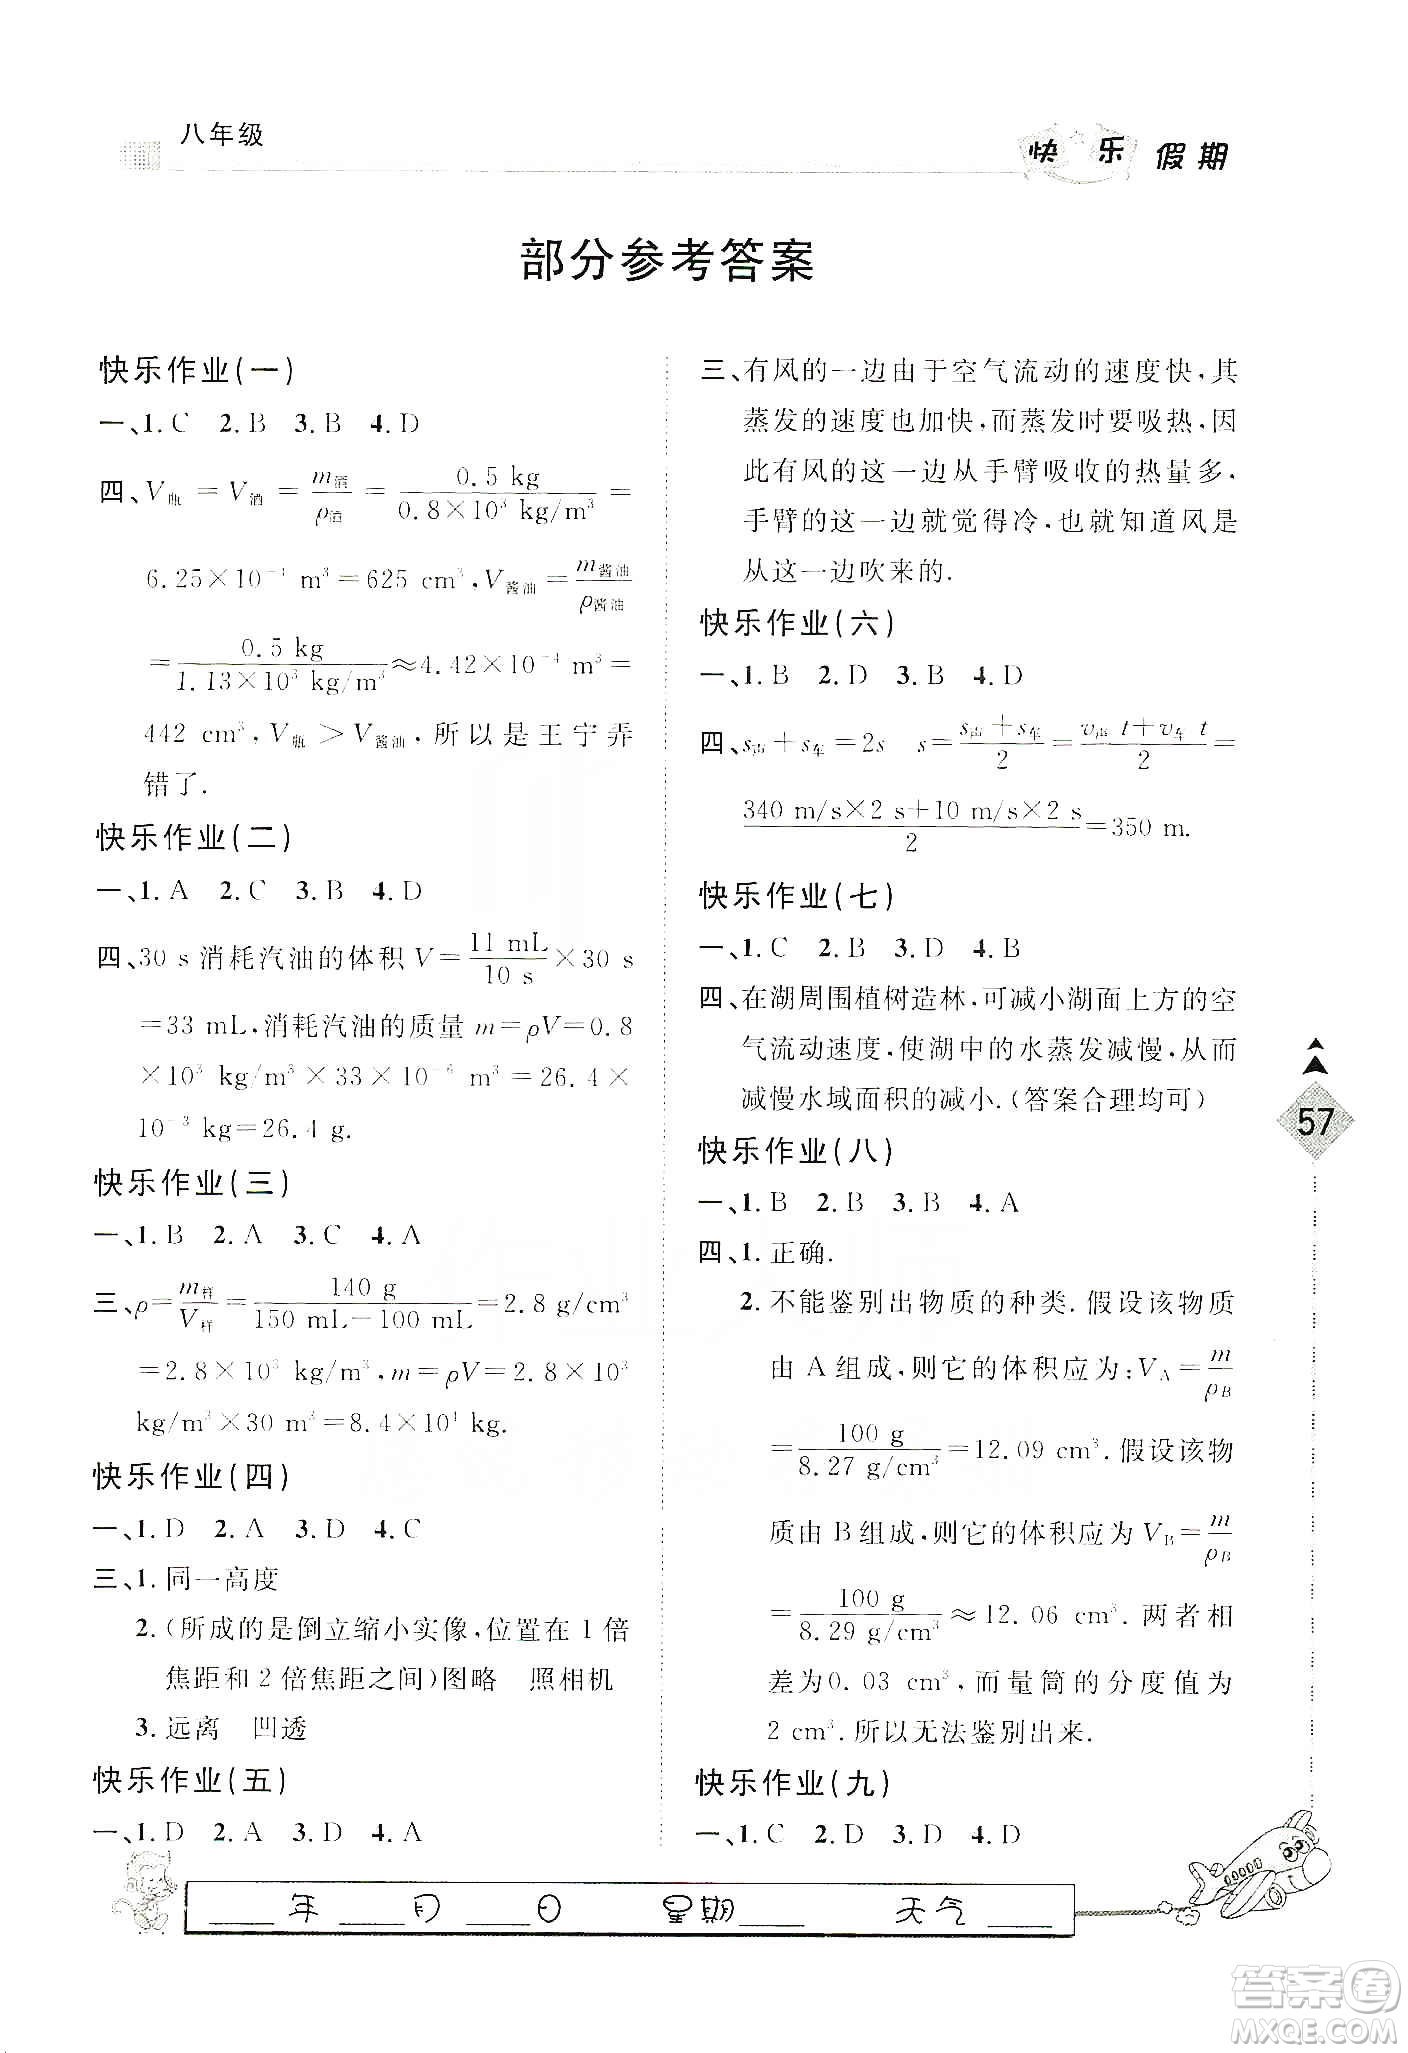 八年级
快乐假期
部分参考答案
快乐作业(一)
一、1. C 2. B 3. B 4. D
四、V瓶 = V酒 = m酒/ρ酒 = 0.5 kg/0.8×10³ kg/m³ =
6.25×10⁻⁴ m³=625 cm³,V酱油=m酱油/ρ酱油
=0.5 kg/1.13×10³ kg/m³≈4.42×10⁻⁴ m³=
442 cm³,V瓶>V酱油,所以是王宁弄
错了.
快乐作业(二)
一、1. A 2. C 3. B 4. D
四、30 s消耗汽油的体积V=11 mL/10 s×30 s
=33 mL,消耗汽油的质量m=ρV=0.8
×10³ kg/m³×33×10⁻⁶ m³=26.4×
10⁻³ kg=26.4 g.
快乐作业(三)
一、1. B 2. A 3. C 4. A
三、ρ=m样/V样=140 g/150 mL-100 mL=2.8 g/cm³
=2.8×10³ kg/m³,m=ρV=2.8×10³
kg/m³×30 m³=8.4×10⁴ kg.
快乐作业(四)
一、1. D 2. A 3. D 4. C
三、1. 同一高度
2.(所成的是倒立缩小实像,位置在1倍
焦距和2倍焦距之间)图略 照相机
3. 远离 凹透
快乐作业(五)
一、1. D 2. A 3. D 4. A
三、有风的一边由于空气流动的速度快,其
蒸发的速度也加快,而蒸发时要吸热,因
此有风的这一边从手臂吸收的热量多,
手臂的这一边就觉得冷,也就知道风是
从这一边吹来的.
快乐作业(六)
一、1. B 2. D 3. B 4. D
四、s声+s车=2s s=s声+s车/2=v声 t+v车 t/2=
340 m/s×2 s+10 m/s×2 s/2=350 m.
快乐作业(七)
一、1. C 2. B 3. D 4. B
四、在湖周围植树造林,可减小湖面上方的空
气流动速度,使湖中的水蒸发减慢,从而
减慢水域面积的减小.(答案合理均可)
快乐作业(八)
一、1. B 2. B 3. B 4. A
四、1. 正确.
2. 不能鉴别出物质的种类.假设该物质
由A组成,则它的体积应为:V_A=m/ρ_B
=100 g/8.27 g/cm³=12.09 cm³.假设该物
质由B组成,则它的体积应为V_B=m/ρ_B
=100 g/8.29 g/cm³≈12.06 cm³.两者相
差为0.03 cm³,而量筒的分度值为
2 cm³.所以无法鉴别出来.
快乐作业(九)
一、1. C 2. D 3. D 4. D
57
____年____月____日 星期____ 天气____
答案圈
MXQE.COM